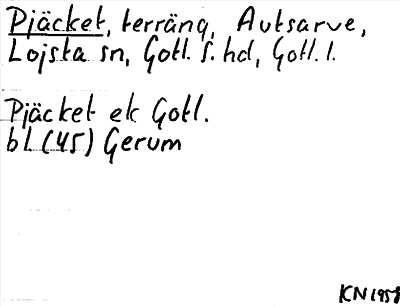 Pjäcket, terräng, Autsarve,
Lojsta sn, Gotl. s. hd, Gotl. l.
Pjäcket ek Gotl.
bl. (45) Gerum
KN 1958